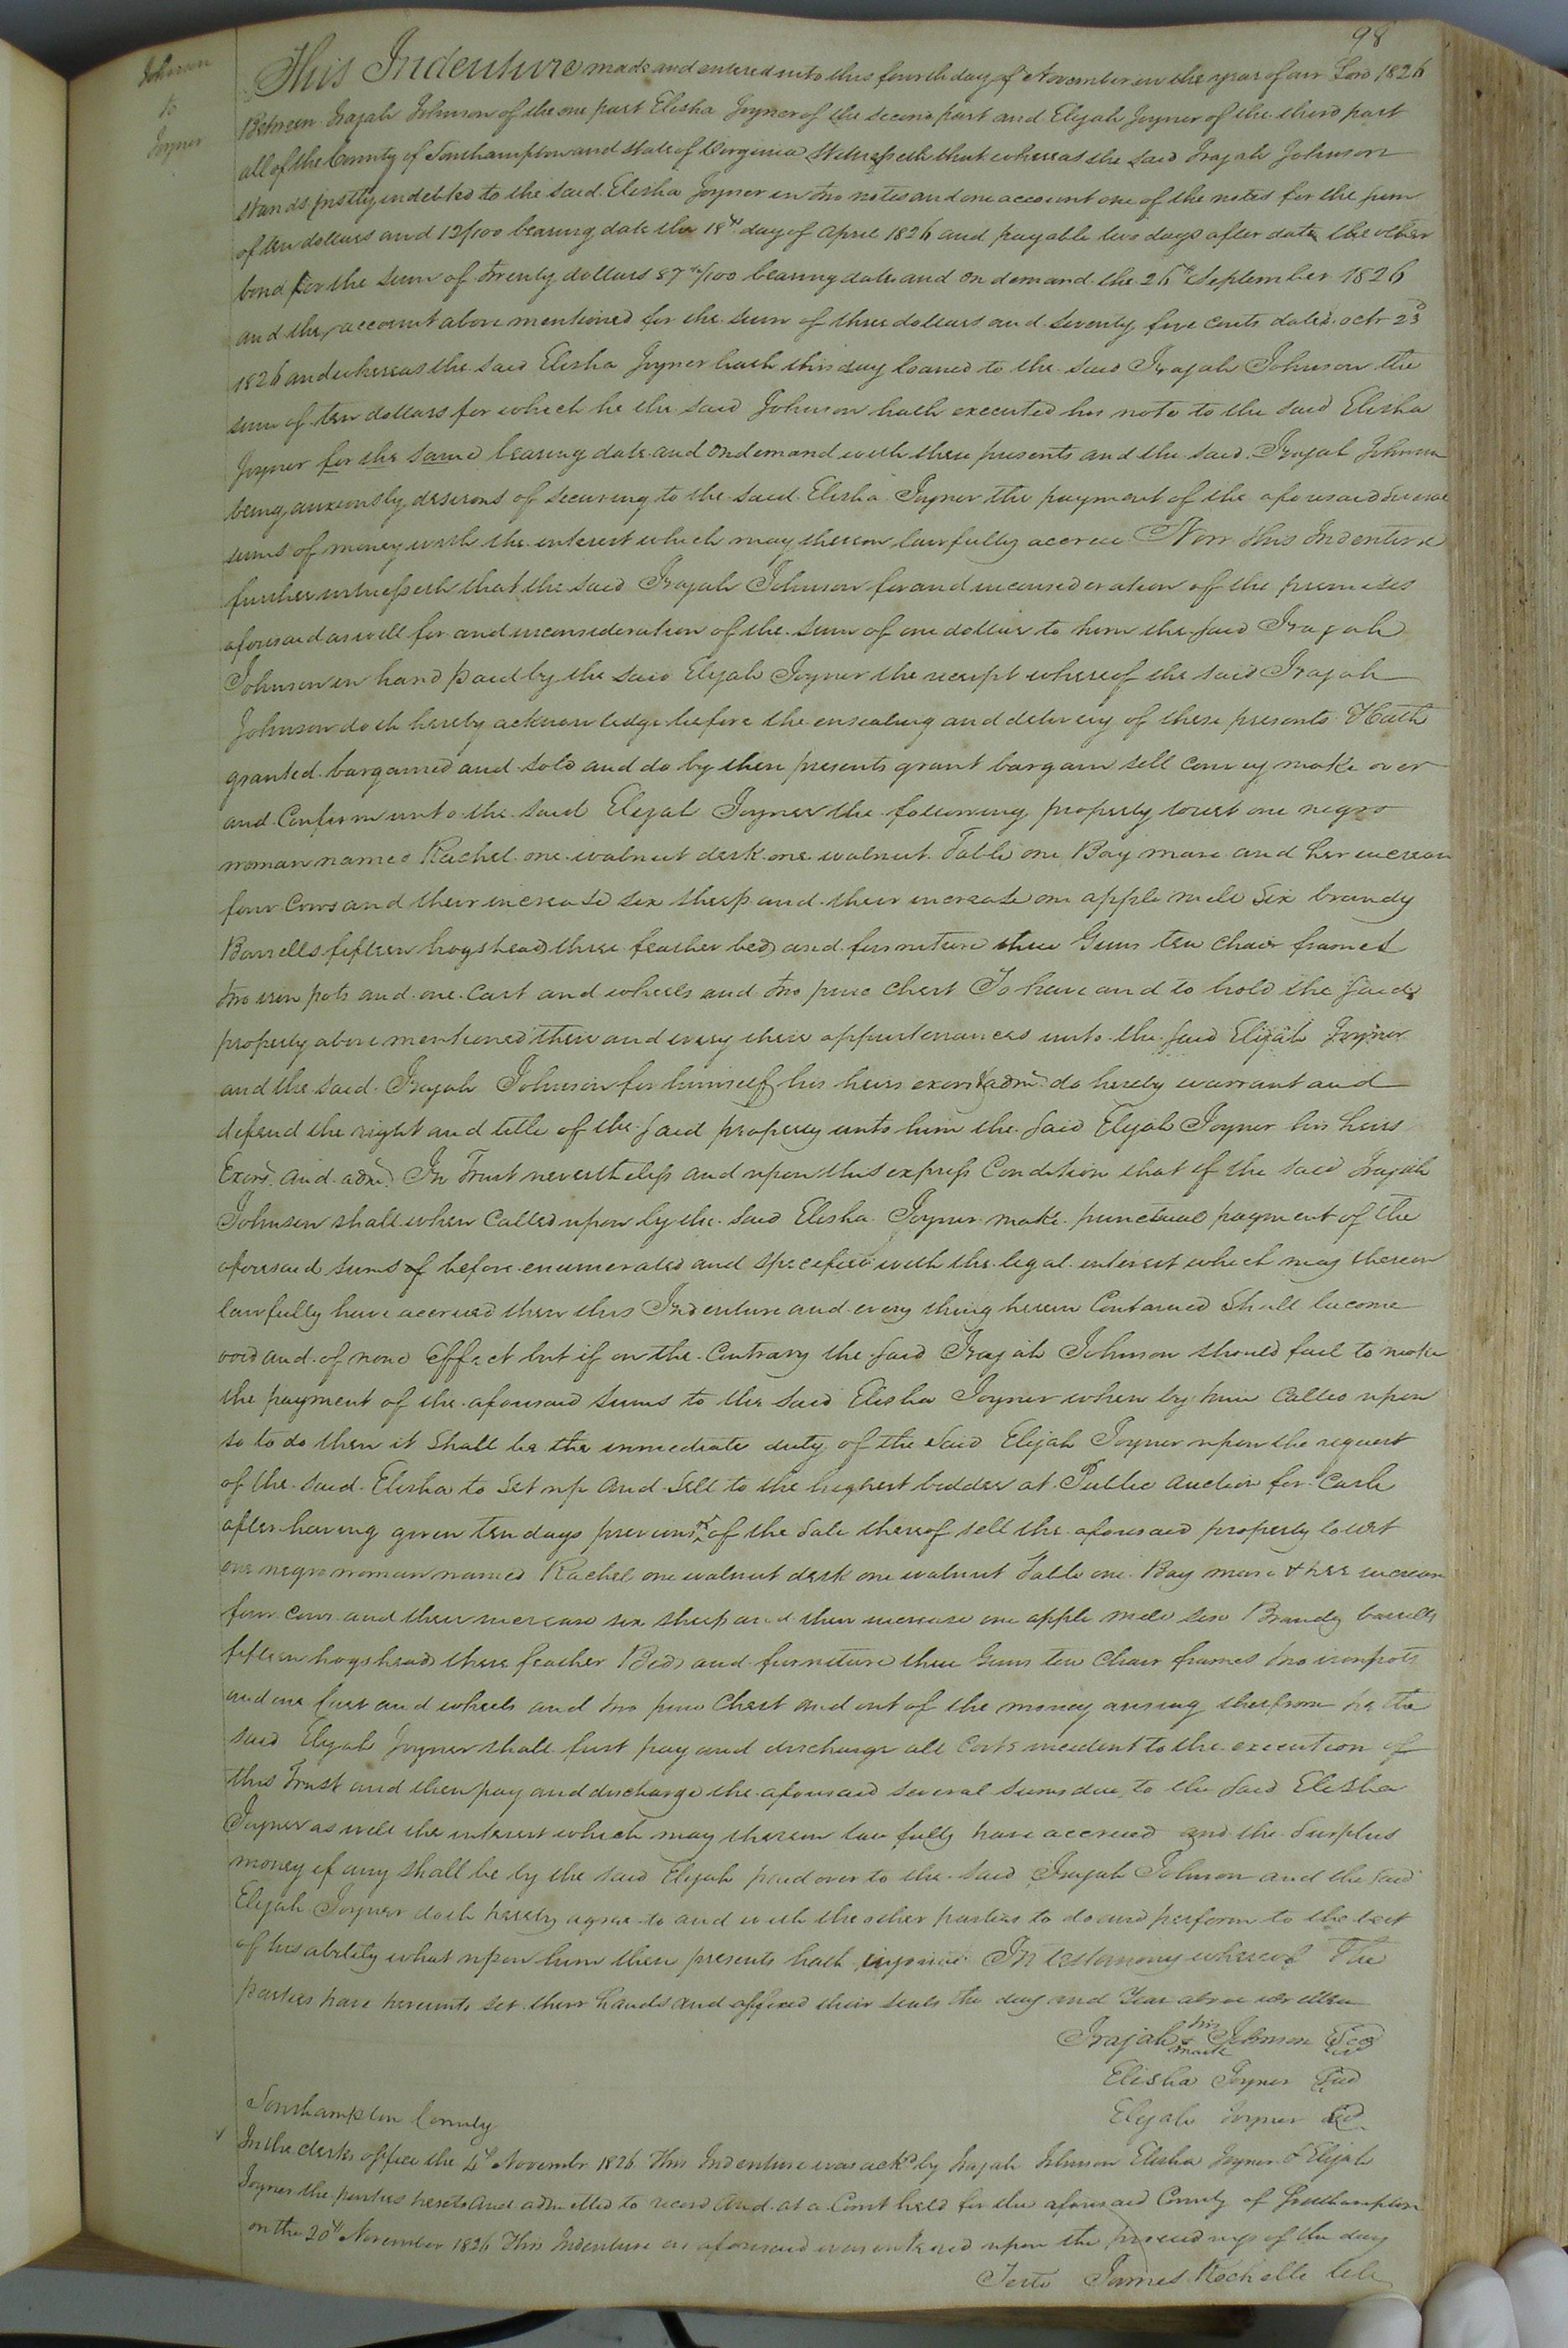 98
Johnson
to
Joyner
This Indenture made and entered into this fourth day of November in the year of our Lord 1826
Between Irajah Johnson of the one part Elisha Joyner of the second part and Elijah Joyner of the third part
all of the County of Southampton and State of Virginia Witnesseth that whereas the said Irajah Johnson
stands justly indebted to the said Elisha Joyner in two notes and one account one of the notes for the sum
of ten dollars and 12/100 bearing date the 18th day of April 1826 and payable two days after date the other
bond for the sum of twenty dollars 87/100 bearing date and on demand the 26th September 1826
and the account above mentioned for the sum of three dollars and seventy five cents dated octr 23d
1826 and whereas the said Elisha Joyner hath this day loaned to the said Irajah Johnson the
sum of ten dollars for which he the said Johnson hath executed his note to the said Elisha
Joyner for the same bearing date and on demand with these presents and the said Irajah Johnson
being anxiously desirous of securing to the said Elisha Joyner the payment of the aforesaid several
sums of money with the interest which may thereon lawfully accrue Now this Indenture
further witnesseth that the said Irajah Johnson for and in consideration of the premises
aforesaid as well for and in consideration of the sum of one dollar to him the said Irajah
Johnson in hand paid by the said Elijah Joyner the receipt whereof the said Irajah
Johnson doth hereby acknowledge before the ensealing and delivery of these presents Hath
granted bargained and sold and do by these presents grant bargain sell convey make over
and confirm unto the said Elijah Joyner the following property towit one negro
woman named Rachel one walnut desk one walnut Table one Bay mare and her increase
four Cows and their increase six sheep and their increase one apple mile six brandy
Barrells fifteen hogsheads three feather beds and furniture three Guns ten chair frames
two iron pots and one Cart and wheels and two pine chest To have and to hold the said
property above mentioned them and every there appurtenances unto the said Elijah Joyner
and the said Irajah Johnson for himself his heirs exors & admr do hereby warrant and
defend the right and title of the said property unto him the said Elijah Joyner his heirs
Exors. and admr. In Trust nevertheless and upon this express Condition that if the said Irajah
Johnson shall when called upon by the said Elisha Joyner make punctual payment of the
aforesaid sums of before enumerated and specified with the legal interest which may thereon
lawfully have accrued then this Indenture and every thing herein Contained Shall become
void and of none Effect but if on the Contrary the said Irajah Johnson should fail to make
the payment of the aforesaid sums to the said Elisha Joyner when by him called upon
so to do then it Shall be the immediate duty of the said Elijah Joyner upon the request
of the said Elisha to set up and sell to the highest bidder at Public auction for Cash
after having given ten days previous of the Sale thereof sell the aforesaid property towit
one negro woman named Rachel one walnut desk one walnut Table one Bay mare & her increase
four Cows and their increase six sheep and their increase one apple mile six Brandy barrells
fifteen hogsheads three feather Beds and furniture three Guns ten Chair frames two iron pots
and one Cart and wheels and two pine Chest and out of the money arising therefrom he the
said Elijah Joyner shall first pay and discharge all Costs incident to the execution of
this Trust and then pay and discharge the aforesaid several sums due to the said Elisha
Joyner as well the interest which may thereon lawfully have accrued and the Surplus
money if any shall be by the said Elijah paid over to the said Irajah Johnson and the said
Elijah Joyner doth hereby agree to and with the other parties to do and perform to the best
of his ability what upon him these presents hath In testamony whereof The
parties have hereunto set their hands and affixed their seals the day and Year above written
Irajah his mark Johnson Seal
Elisha Joyner Seal
Elijah Joyner Seal
Southampton County
In the clerks office the 4th Novembr 1826 This Indenture was ackd by Irajah Johnson Elisha Joyner & Elijah
Joyner the parties hereto and admitted to record And at a Court held for the aforesaid County of Southampton
on the 20th November 1826 This Indenture as aforesaid was entered upon the proceedings of the day
Teste James Rochelle Clk